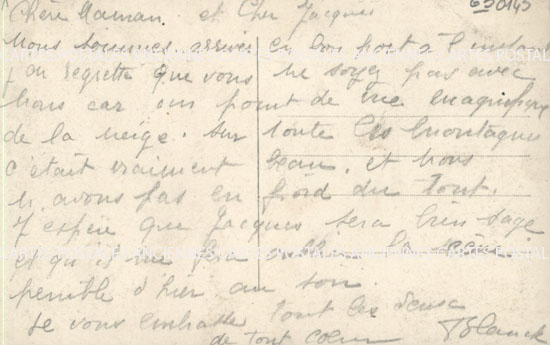 Chère Maman. et Cher Jacques
630145
Nous sommes arrivés en bon port à l'instant
on regrette que vous ne soyez pas avec
nous car un point de vue magnifique
de la neige. sur toute les montagnes
c'était vraiment beau. et nous
n'avons pas eu froid du tout.
J'espère que Jacques sera bien sage
et qu'il ne fera la scène
penible d'hier au soir.
Je vous embrasse tout les deux
de tout coeur Blanck